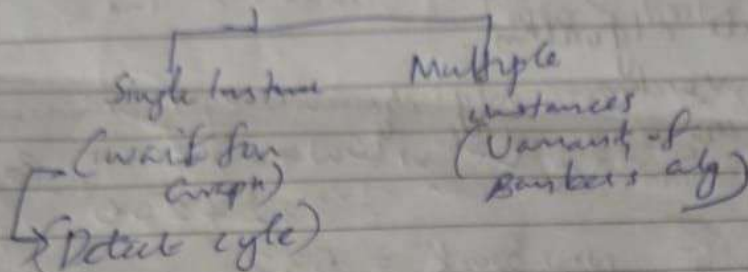 Single Instance
(wait for
Graph)
(Detect cycle)
Multiple
instances
(Variant of
Banker's alg)